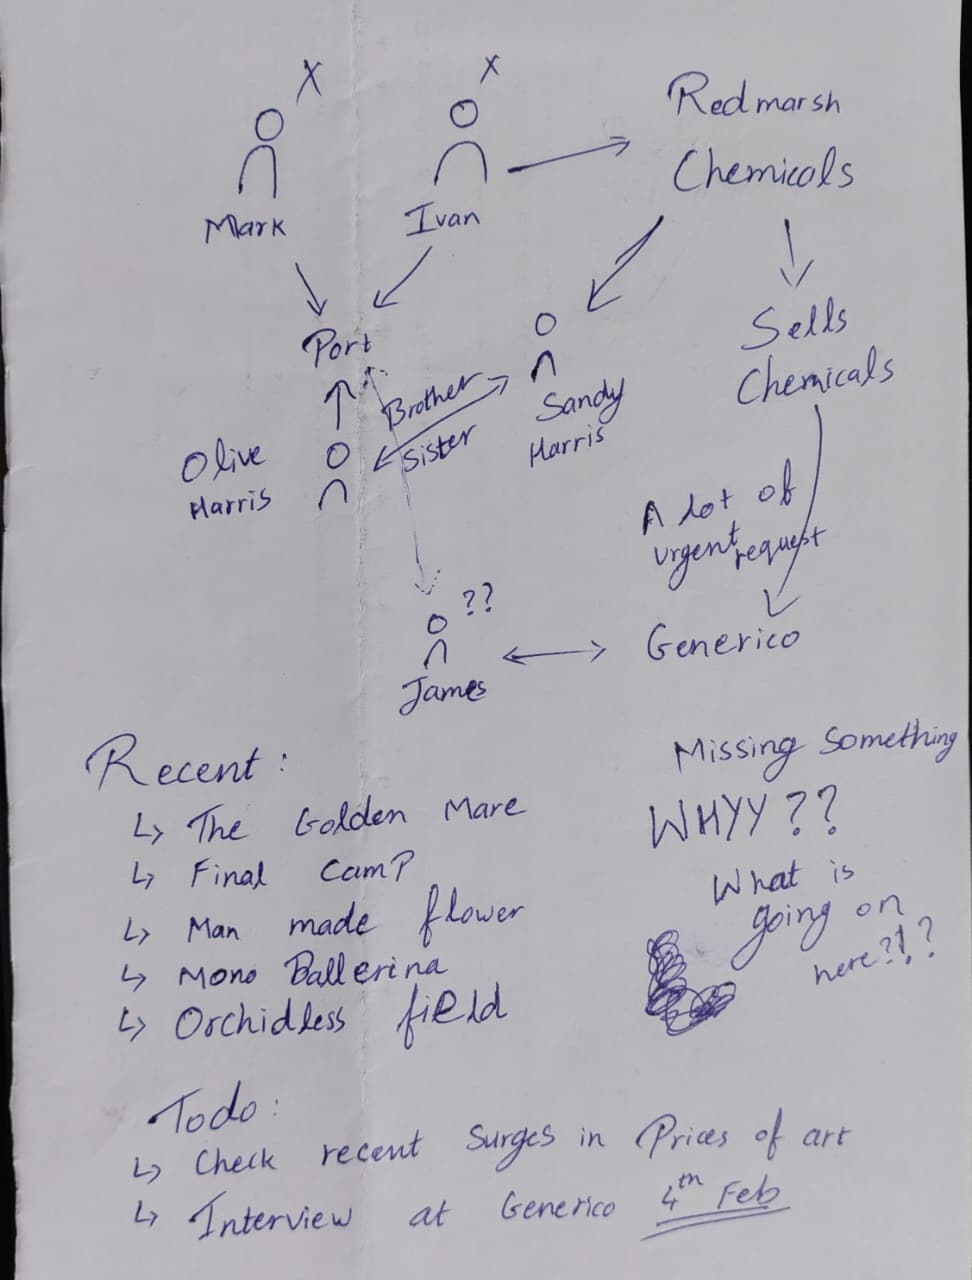 X
X
Mark
Ivan
Redmarsh
Chemicals
Port
Sells
Chemicals
Brother
Sister
Sandy
Harris
Olive
Harris
A lot of
urgent request
??
James
Generico
Recent :
↳ The Golden Mare
↳ Final Camp
↳ Man made flower
↳ Mono Ballerina
↳ Orchidless field
Missing Something
WHYY ??
What is
going on
here?!?
Todo :
↳ Check recent Surges in Prices of art
↳ Interview at Generico 4th Feb